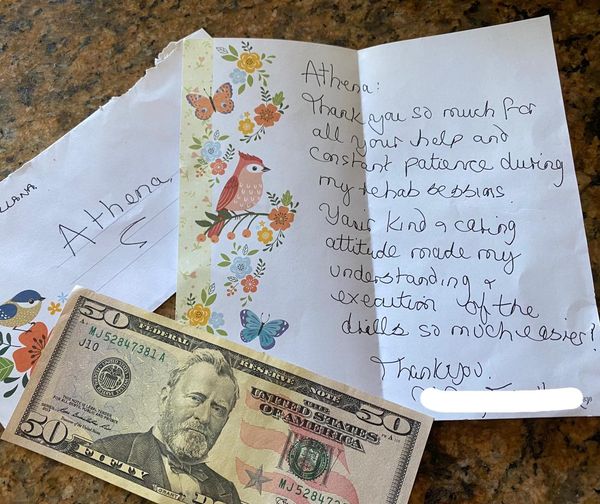 Athena
Athena:
Thank you so much for
all your help and
constant patience during
my rehab sessions.
Your kind & caring
attitude made my
understanding &
execution of the
drills so much easier!
Thank you.
50
FEDERAL RESERVE NOTE
50
MJ 52847381 A
J10
THE
UNITED STATES
OF AMERICA
50
FIFTY
GRANT
MJ 528473